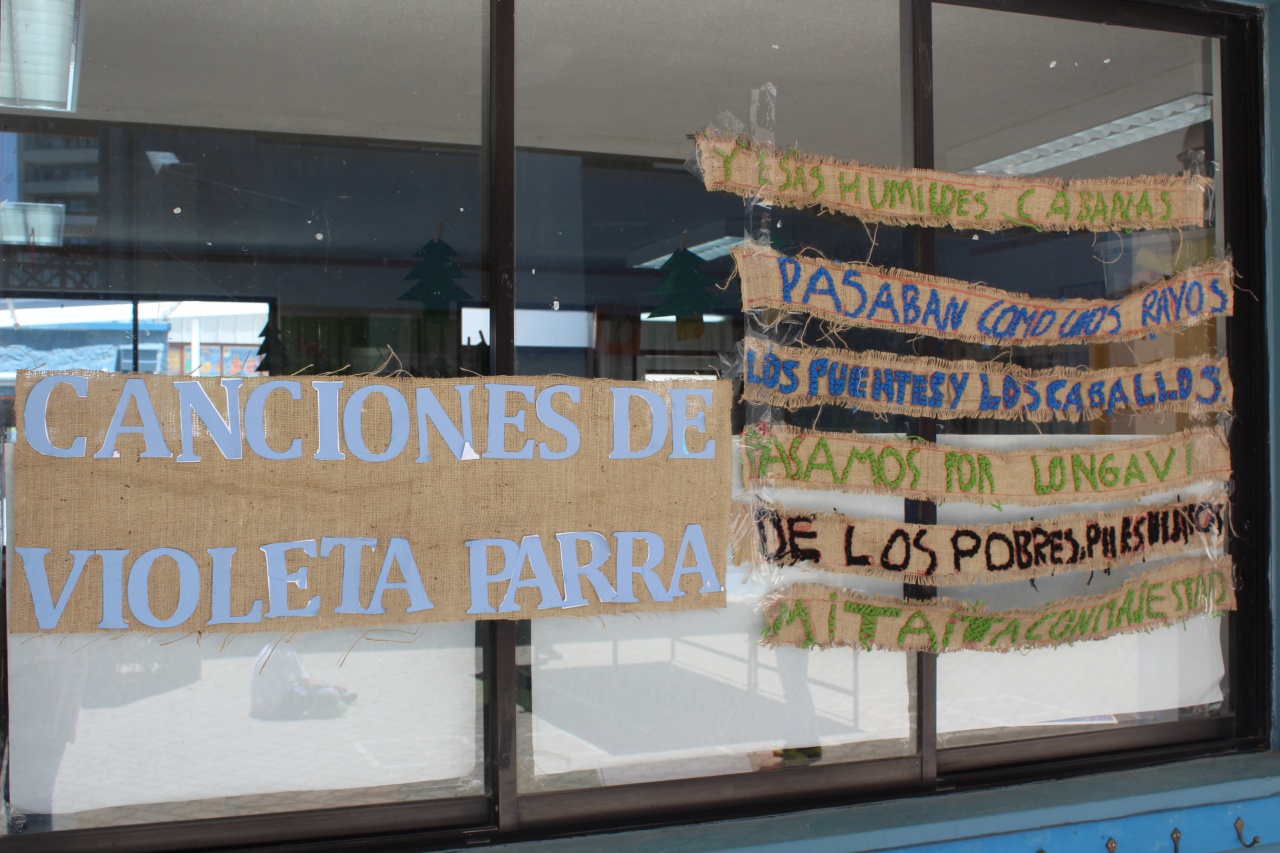 CANCIONES DE
VIOLETA PARRA.
Y ESAS HUMILDES CABANAS
PASABAN COMO UNOS RAYOS
LOS PUENTES Y LOS CABALLOS.
PASAMOS POR LONGAVI
DE LOS POBRES,
MI TAITA CON MAJESTAD